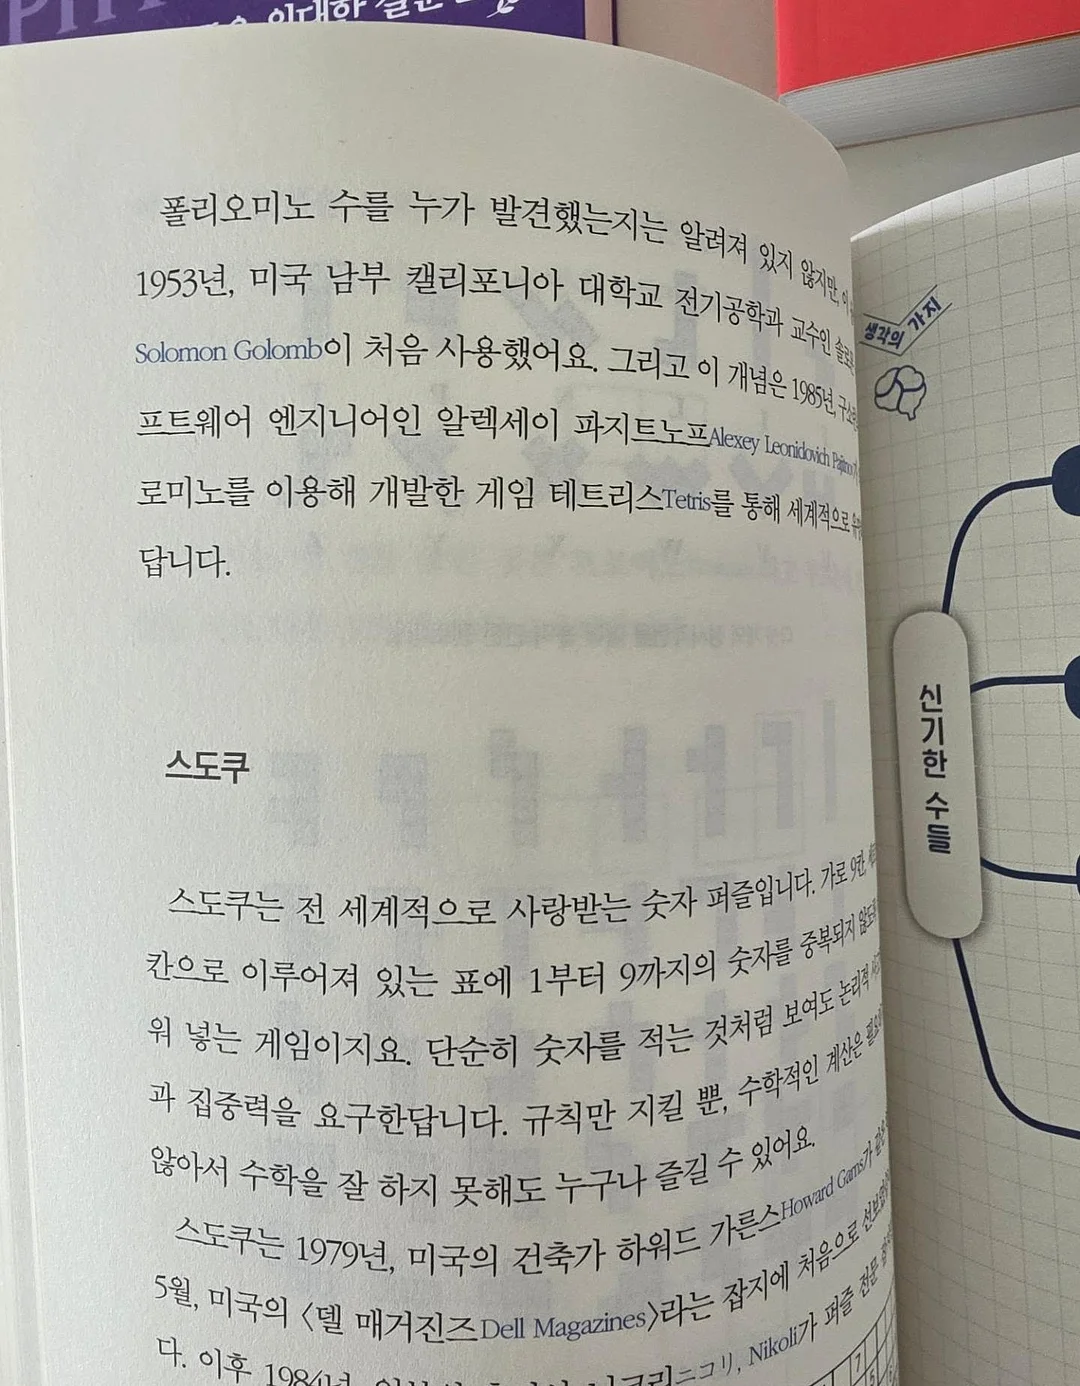 위대한 질문
폴리오미노 수를 누가 발견했는지는 알려져 있지 않지만, 이
1953년, 미국 남부 캘리포니아 대학교 전기공학과 교수인
Solomon Golomb이 처음 사용했어요. 그리고 이 개념은 1985년,
프트웨어 엔지니어인 알렉세이 파지트노프Alexey Leonidovich
로미노를 이용해 개발한 게임 테트리스Tetris를 통해 세계적으로
답니다.
스도쿠
스도쿠는 전 세계적으로 사랑받는 숫자 퍼즐입니다. 가로 9칸,
칸으로 이루어져 있는 표에 1부터 9까지의 숫자를 중복되지 않도록
워 넣는 게임이지요. 단순히 숫자를 적는 것처럼 보여도 논리적
과 집중력을 요구한답니다. 규칙만 지킬 뿐, 수학적인 계산은
않아서 수학을 잘 하지 못해도 누구나 즐길 수 있어요.
스도쿠는 1979년, 미국의 건축가 하워드 가른스Howard Garns가 같은
5월, 미국의 〈델 매거진즈Dell Magazines〉라는 잡지에 처음으로
다. 이후 1984년, ニコリ, Nikoli가 퍼즐 전문
생각의 가지
신기한 수들